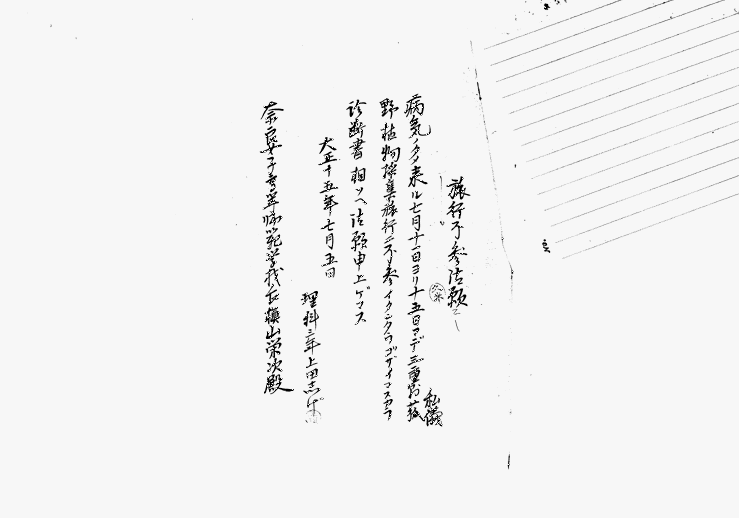 旅行不参御願
私儀
病気ノタメ来ル七月十一日ヨリ十五日マデ三重県菰
野植物採集旅行ニ不参イタシタウゴザイマスカラ
診断書相ソヘ御願申上ゲマス
大正十五年七月五日
理科三年上田志げ
奈良女子高等師範学校長槇山栄次殿